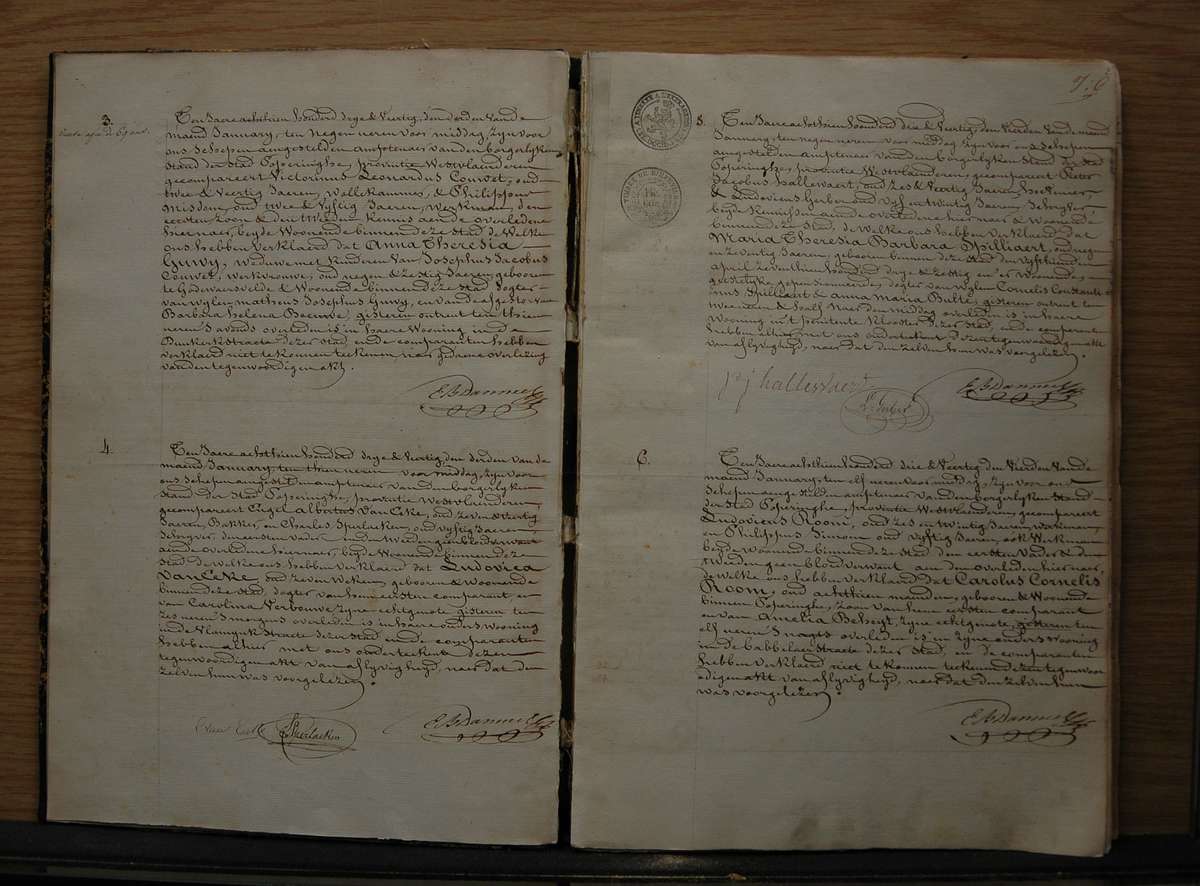 3.
Ten Jaere achthien honderd drye & Veertig, den derden van de
maend January, ten negen ueren voor middag, zyn voor
ons schepen aengestelden amptenaer van den borgerlyken
stand der stad Poperinghe, provintie Westvlaenderen
gecompareert Victorinus Leonardus Couwet, oud
twee & Veertig Jaeren, Wollekammer, & Philippus
Misdom, oud twee & Vyftig Jaeren, Werkman, den
eersten zoon & den tweeden kennis aen de overledene
hiernaer, beyde Woonende binnen deze stad, de Welke
ons hebben verklaerd dat Anna Theresia
Guwy, Weduwe met kinderen van Josephus Jacobus
Couwet, werkvrouwe, oud negen & zestig Jaeren, gebooren
te Godewaersvelde & Woonende binnen deze stad, dogter
van wylen Matheus Josephus Guwy, en van de
Barbara Helena gisteren ontrent ten thien
ueren 's avonds overleden is in haere Wooning in de
Dunkerkstraete dezer stad, en de comparanten hebben
verklaerd niet te konnen teekenen naer gedaene voorlezing
van den tegenwoordigen akt.
4.
Ten Jaere achthien honderd drye & Veertig, den derden van de
maend January, ten thien ueren voor middag, zyn voor
ons schepen aengestelden amptenaer van den borgerlyken
stand der stad Poperinghe, provintie Westvlaenderen,
gecompareert Engel Albertus Van Eeke, oud zeven & veertig
Jaeren, Bakker, en Charles Sperlaeken, oud vyftig Jaeren,
Schryver, den eersten vader en den tweeden geen bloedverwant
aen de overledene hiernaer, beyde Woonende binnen deze
stad, de welke ons hebben verklaerd dat Ludovica
Van Eeke, oud zeven Weken, gebooren & Woonende
binnen deze stad, dogter van den eersten comparant en
van Carolina Verbouwe zyne echtgenote, gisteren ten
zes ueren 's morgens overleden is in haere ouders wooning
in de Vlamynkstraete dezer stad en de comparanten
hebben alhier met ons onderteekent dezen
tegenwoordigen akt van aflyvigheyd, naer dat den
zelven hun was voorgelezen.
5.
Ten Jaere achthien honderd drie & Veertig, den Vierden van de maend
January, ten negen ueren voor middag zyn voor ons schepen
aengestelden amptenaer van den borgerlyken stand der stad
Poperinghe, provintie Westvlaenderen, gecompareert Pieter
Jacobus Hallewaert, oud zes & Veertig Jaeren,
& Ludovicus Gerbor oud vyf en twintig Jaeren, Schryver
beyde kennissen aen de overledene hiernaer & Woonende
binnen deze stad, de Welke ons hebben Verklaerd dat
Maria Theresia Barbara Spilliaert, oud negen
en zeventig Jaeren, gebooren binnen deze stad den vyftienden
april zeventhien honderd drye & zestig en er Woonende,
geestelyke gepensionneerde, dogter van wylen Cornelis Constanti-
nus Spilliaert & Anna Maria Bulte, gisteren ontrent ten
twee ueren & half naer den middag overleden is in haere
Wooning in 't penitente Klooster dezer stad, en de comparanten
hebben alhier met ons onderteekent dezen tegenwoordigen akt
van aflyvigheyd, naer dat den zelven hun was voorgelezen.
p j hallewaert
6.
Ten Jaere achthien honderd drie & Veertig den Vierden van de
maend January, ten elf ueren voor middag, zyn voor ons
schepen aengestelden amptenaer van den borgerlyken stand
der stad Poperinghe, provintie Westvlaenderen, gecompareert
Ludovicus Room, oud zes en twintig Jaeren, Werkman,
en Philippus Simoen oud Vyftig Jaeren, ook Werkman
beyde woonende binnen deze stad den eersten Vader & den
tweeden geen bloedverwant aen den overleden hiernaer,
de welke ons hebben verklaerd dat Carolus Cornelis
Room, oud achthien maenden, gebooren & Woonende
binnen Poperinghe, zoon van den eersten comparant
en van Amelia zyne echtgenote, gisteren ten
elf ueren 's nagts overleden is in zyne ouders wooning
in de babbelaerstraete dezer stad, en de comparanten
hebben verklaerd niet te konnen teekenen dezen tegenwoor-
digen akt van aflyvigheyd, naer dat den zelven hun
was voorgelezen.